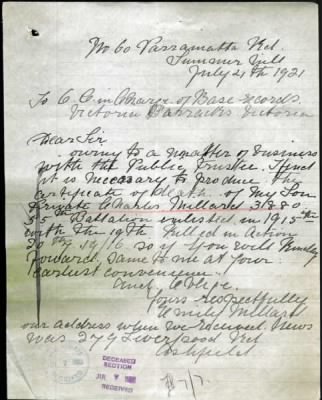 No 60 Parramatta Rd.
Summer Hill
July 4th 1921
To O. C. in Charge of Base Records
Victoria Barracks Victoria
Dear Sir
owing to a matter of business
with the Public Trustee. I find
it is necessary to produce the
certificate of death of my Son
Private Charles Millard 3880.
55th Battalion enlisted in 1915
with the 19th Killed in Action
20th 1916 so if you will kindly
forward same to me at your
earliest convenience
and oblige.
Yours respectfully
Emily Millard
our address when we received news
was 279 Liverpool Rd
Ashfield
DECEASED
SECTION
JUL
RECEIVED
7/7